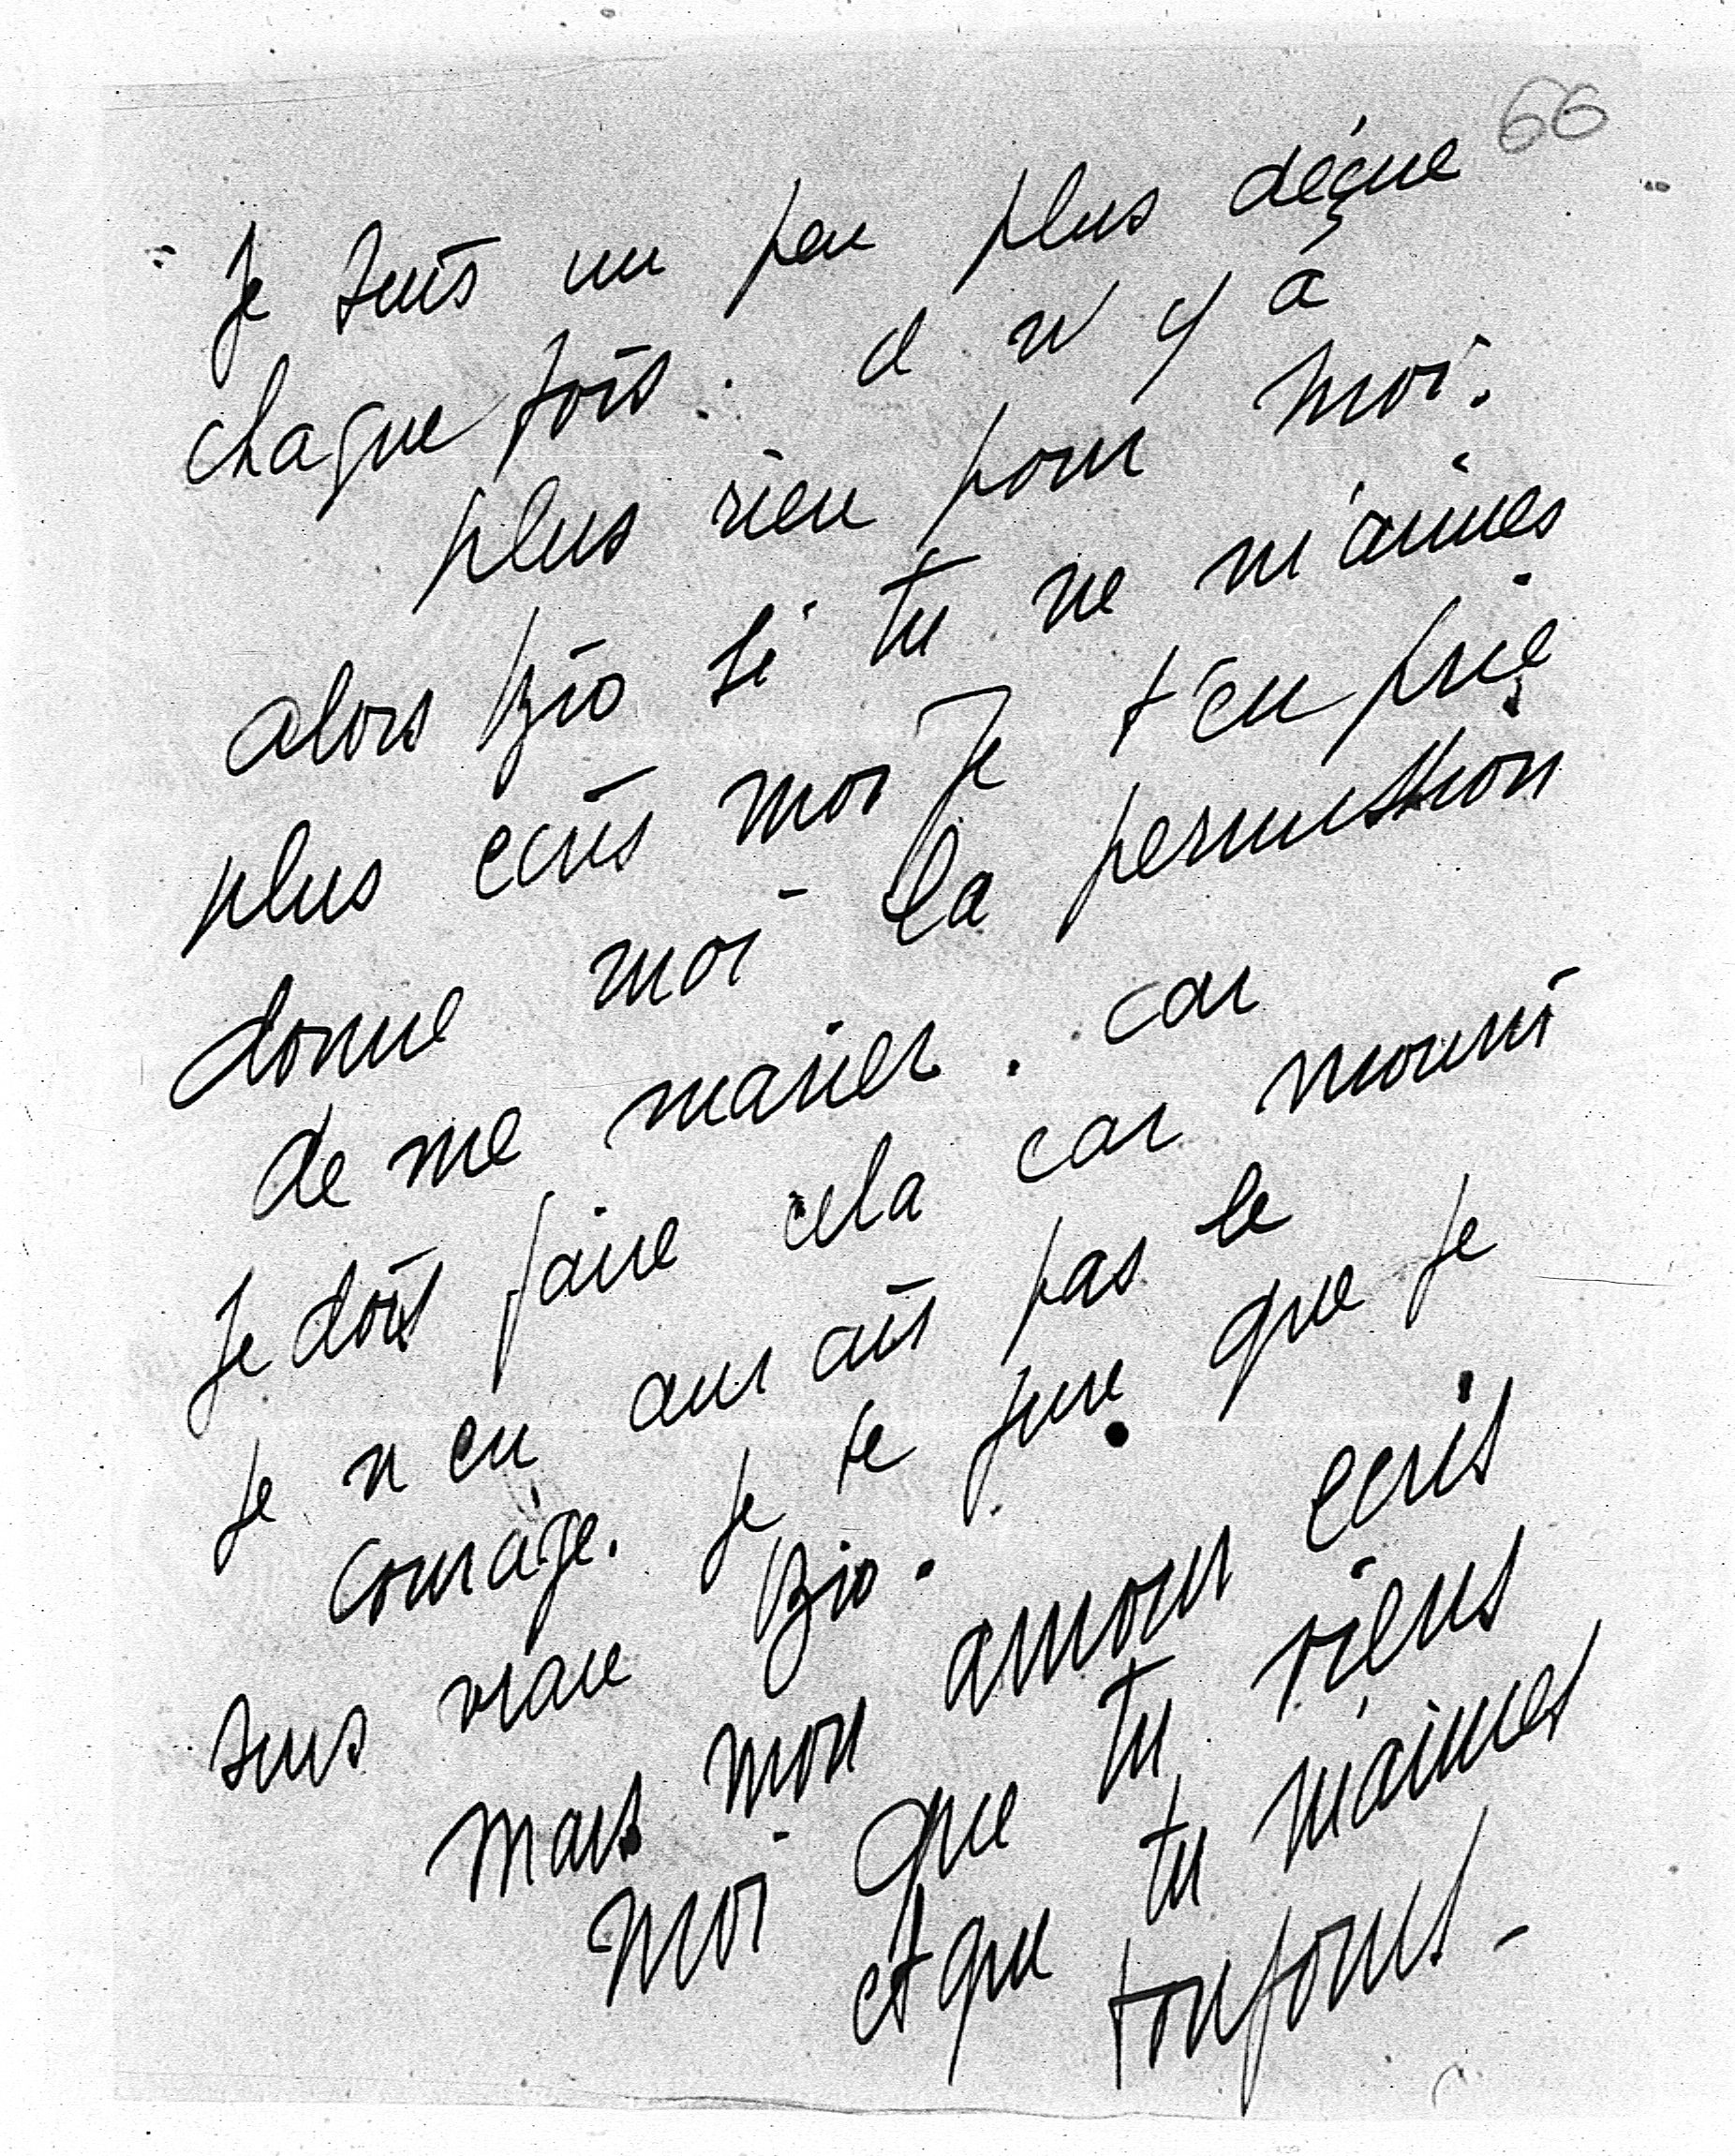 66
Je suis un peu plus déçue
chaque fois. il n'y à
plus rien pour moi.
alors Bio si tu ne m'aimes
plus ecris moi je t'en prie
donne moi la permission
de me marier. car
Je dois faire cela car mourir
Je n en aur ais pas le
courage. Je te jure que je
suis vraie Bio.
mais mon amour ecris
moi que tu viens
et que tu m'aimes
toujours -